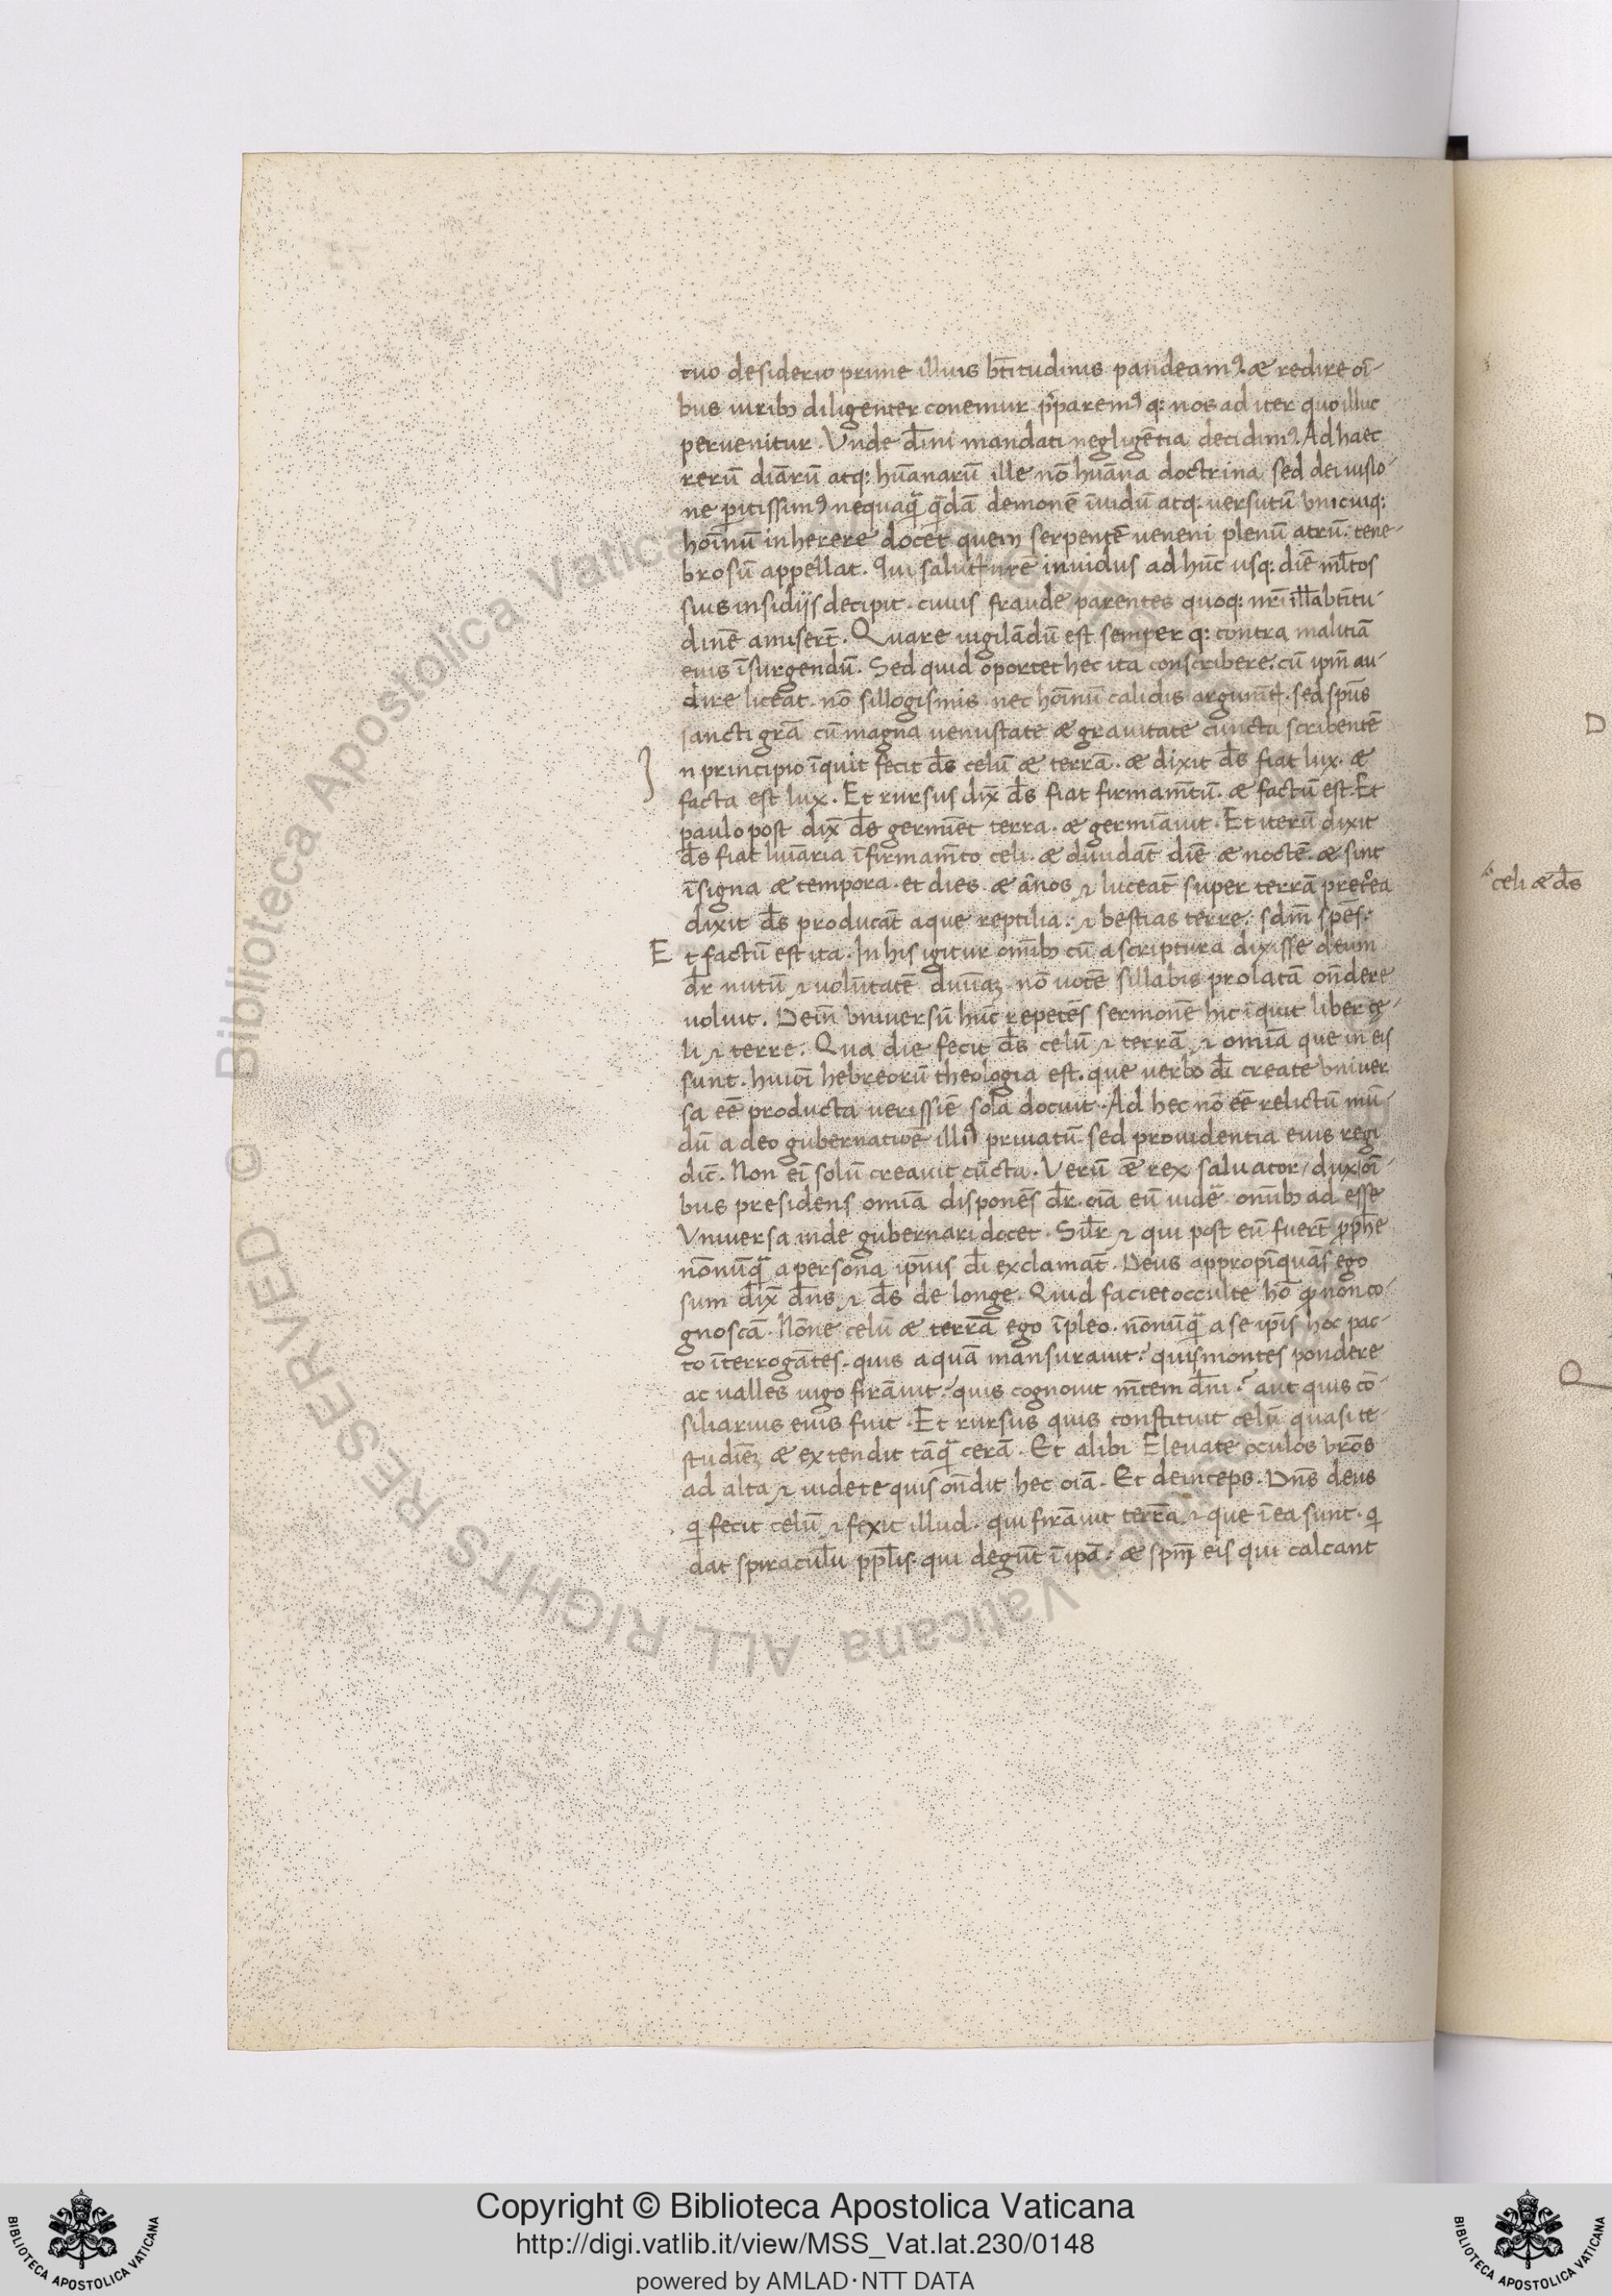 tuo desiderio prime illius bt̄itudinis pandeamꝰ. æ redire oī-
bus uiribꝫ diligenter conemur p̄paremꝰ q: nos ad iter quo illuc
peruenitur. Vnde dīni mandati negligētia decidimꝰ. Ad haec
rerū diāru̅ atq: hūanarū ille nō huāna doctrina sed dei uisio-
ne ꝑitissimꝰ nequaq̄ q̄dā demonē īuidū atq: uersutū vnicuiq:
hoīnū inherere docet quem serpentē ueneni plenū atrū. tene-
brosū appellat. Qui saluti nr̄e inuidus ad hūc usq: diē ml̄tos
suis insidijs decipit. cuius fraude parentes quoq: nr̄i illā bt̄itu-
dinē amisert̄. Quare uigilādū est semper q: contra malitiā
eius īsurgendū. Sed quid oportet hec ita conscribere. cū ipm̄ au-
dire liceat. nō sillogismis nec hoīnū calidis argum̄t. sed spūs
sancti grā cū magna uenustate æ grauitate cuncta scribentē
J n principio īquit fecit ds̄ celū æ terrā. æ dixit ds̄ fiat lux. æ
facta est lux. Et rursus dix̄ ds̄ fiat firmam̄tū. æ factū est. Et
paulo post dix̄ ds̄ germiēt terra. æ germiāuit. Et iterū dixit
ds̄ fiat luīaria ī firmam̄to celi. æ diuidāt diē æ noctē. æ sint
ī signa æ tempora. et dies. æ ānos ⁊ luceāt super terrā pret̾ea
dixit ds̄ producāt aque reptilia: ⁊ bestias terre: sdm̄ spēs:
E t factū est ita. In his igitur omībꝫ cū a scriptura dixisse deum
dr̄ nutū ⁊ volūtatē diuīaꝫ nō uocē sillabis prolatā on̄dere
uoluit. Dein̄ vniuersū hūc repetēs sermonē hic īquit liber ce-
li ⁊ terre. Qua die fecit ds̄ celū ⁊ terrā ⁊ omīa que in eis
sunt. huiōi hebreorū theologia est. que uerbo dī create vniuer
sa eē producta uerissiē sola docuit. Ad hec nō eē relictū mū-
dū a deo gubernatiōe illiꝰ priuatū. sed prouidentia eius regi
dic̄. Non eī solū creauit cūcta. Verū æ rex saluator, dux oī-
bus presidens omīa disponēs dr̄. oīa eū uide omībꝫ ad esse
Vniuersa inde gubernari docet. Sil̄r ⁊ qui post eū fuert̄ ꝓph̄e
nōnūq̄ a persona ipīus dī exclamāt. Deus appropīquās ego
sum dix̄ dn̄s ⁊ ds̄ de longe. Quid faciet occulte hō qd non co-
gnoscā. Nōne celū æ terrā ego īpleo. nōnūq̄ a se ipīs hoc pac-
to īterrogātes. quis aquā mansurauit? quis montes pondere
ac ualles iugo firāuit? quis cognouit m̄tem dn̄i? aut quis cō-
siliarius eius fuit. Et rursus quis constituit celū quasi te-
studīeꝫ æ extendit tāq̄ cerā. Et alibi Eleuate oculos vr̄os
ad alta ⁊ uidete quis on̄dit hec oīa. Et deinceps. Dn̄s deus
q̇ fecit celū ⁊ fexit illud. qui firāuit terrā ⁊ que ī ea sunt. q̇
dat spiraculū ppl̄is. qui degūt ī ipā. æ spm̄ eis qui calcant
celi æ ds̄
D
© Biblioteca Apostolica Vaticana ALL RIGHTS RESERVED
Copyright © Biblioteca Apostolica Vaticana
http://digi.vatlib.it/view/MSS_Vat.lat.230/0148
powered by AMLAD·NTT DATA
BIBLIOTECA APOSTOLICA VATICANA
BIBLIOTECA APOSTOLICA VATICANA